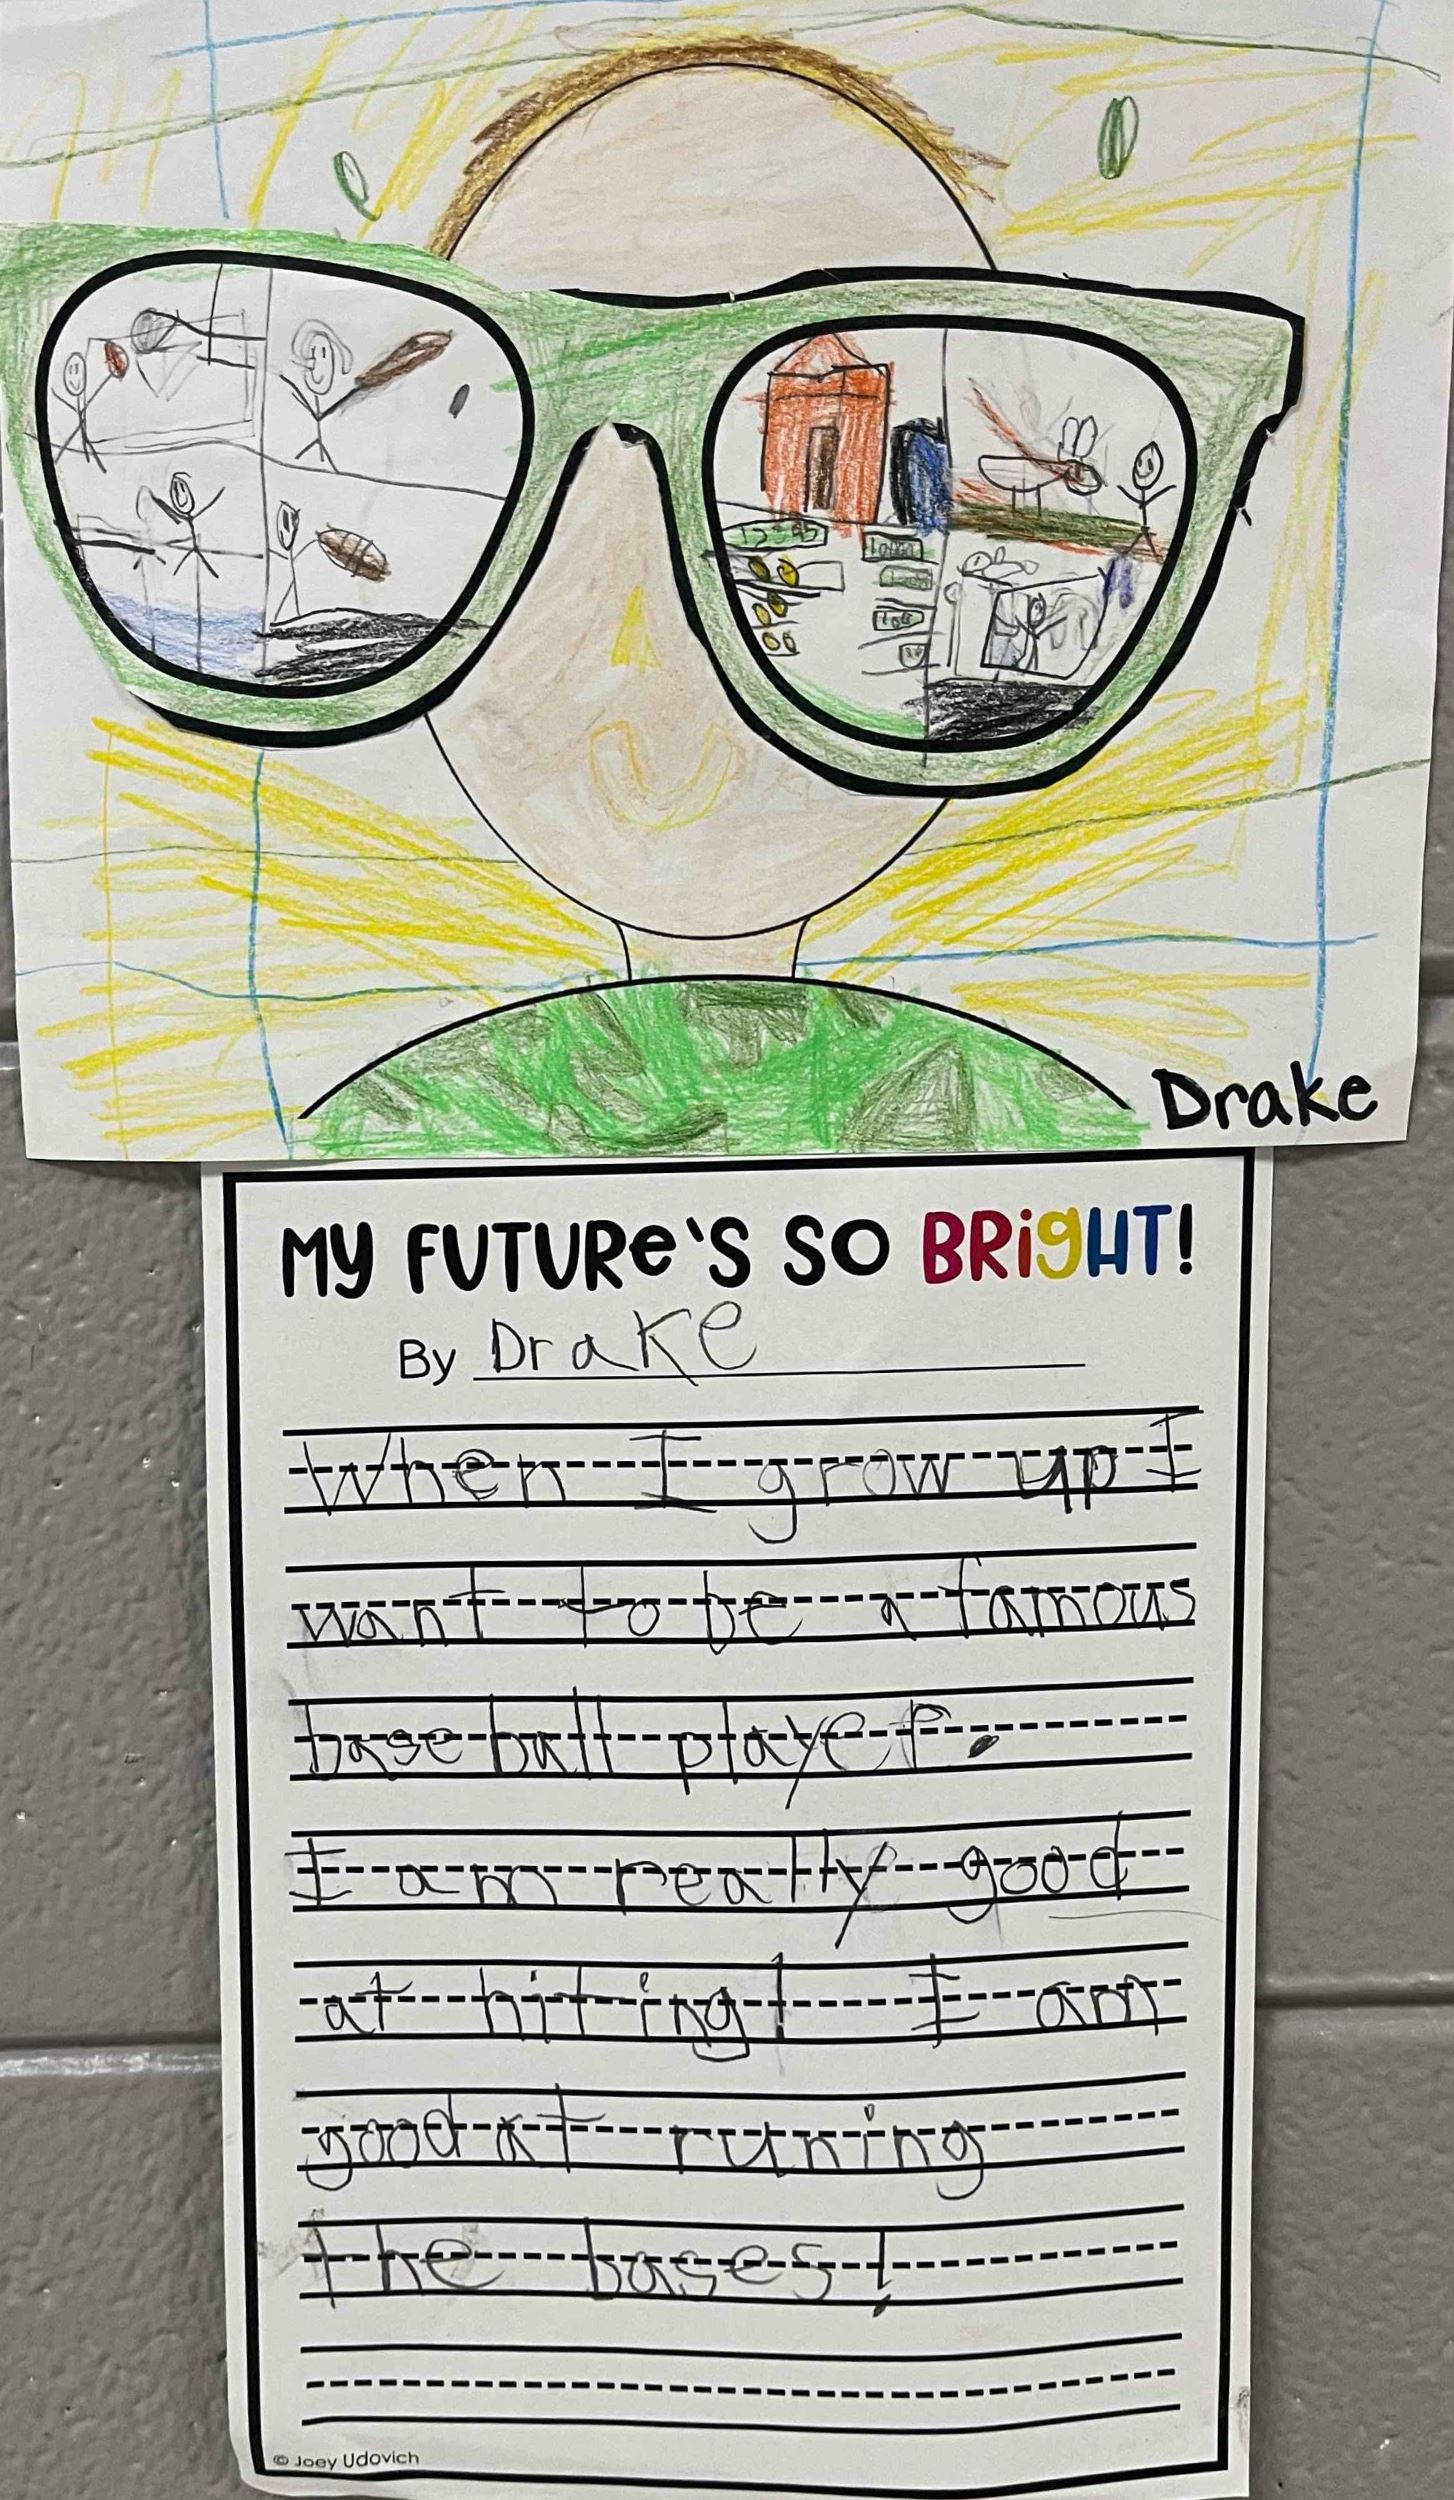 Drake
MY FUTURE'S SO BRIGHT!
By Drake
When I grow up I
want to be a famous
baseball player.
I am really good
at hiting! I am
good at runing
the bases!
© Joey Udovich